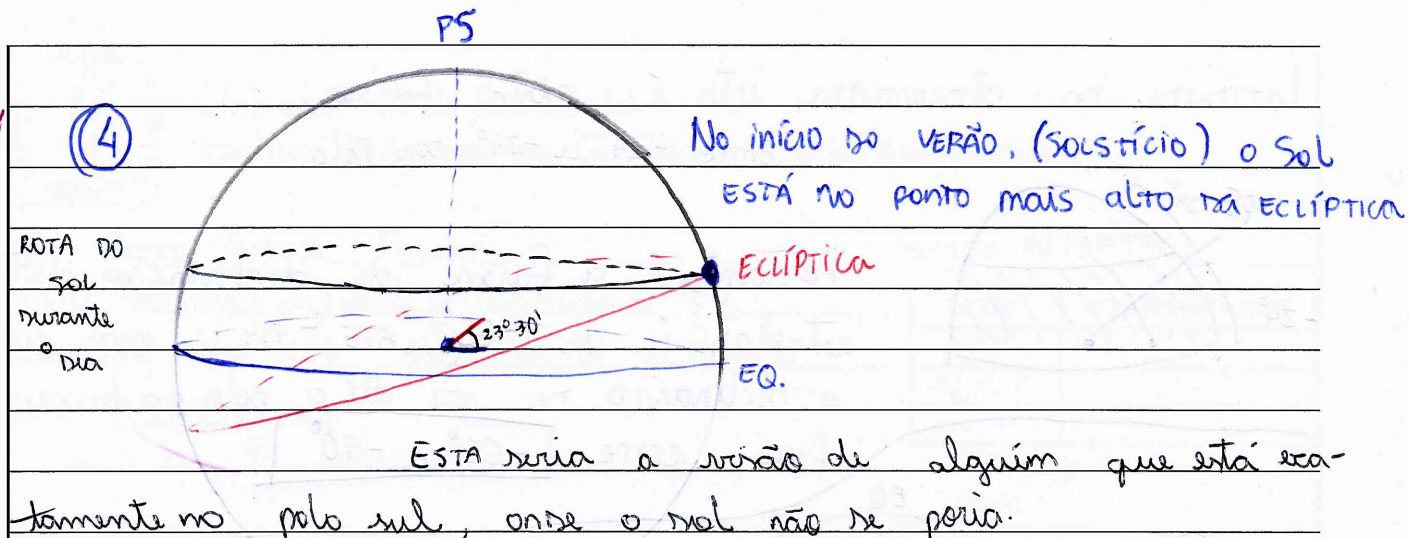 PS
4
No início do VERÃO, (SOLSTÍCIO) o Sol
ESTÁ no ponto mais alto da ECLÍPTICA
ROTA DO
Sol
Durante
o
DIA
ECLÍPTICA
23°30'
EQ.
ESTA seria a visão de alguém que está exa-
tamente no polo sul, onde o sol não se poria.